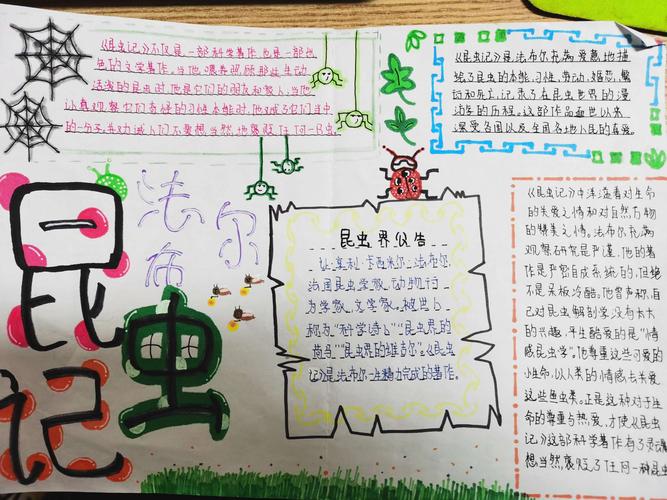 《昆虫记》不仅是一部科学著作,也是一部出
色的文学著作,当他喂养照顾那些生动
活泼的昆虫时,他是它们的朋友和家人,当他
认真观察它们奇怪的习性本能时,他又成了它们当中
的一分子,并对诫人们不要想当然地褒贬任何一只虫.
《昆虫记》是法布尔充满爱意地描
绘了昆虫的本能、习性、劳动、婚恋、繁
衍和死亡,记录了在昆虫世界的漫
动学的历程。这部作品面世以来
深受各国以及全国各地人民的喜爱。
昆虫记
法布尔
昆虫界公告
让·亨利·卡西米尔·法布尔,
法国昆虫学家,动物行
为学家,文学家,被世人
称为“科学诗人”“昆虫界的
荷马”“昆虫界的维吉尔”。《昆虫
记》是法布尔一生精力完成的著作。
《昆虫记》中洋溢着对生命
的关爱之情和对自然万物
的赞美之情。法布尔充满
观察研究是严谨,他的著
作是严密自成系统的,但绝
不是呆板冷酷。他曾声称,自
己对昆虫解剖学没有太大
的兴趣,平生酷爱的是“情
感昆虫学”。他尊重这些可爱的
小生命,以人类的情感去关爱
这些鱼虫类。正是这种对于生
命的尊重与热爱,才使《昆虫
记》这部科学著作有了灵魂
想当然,褒贬了任何一种昆虫